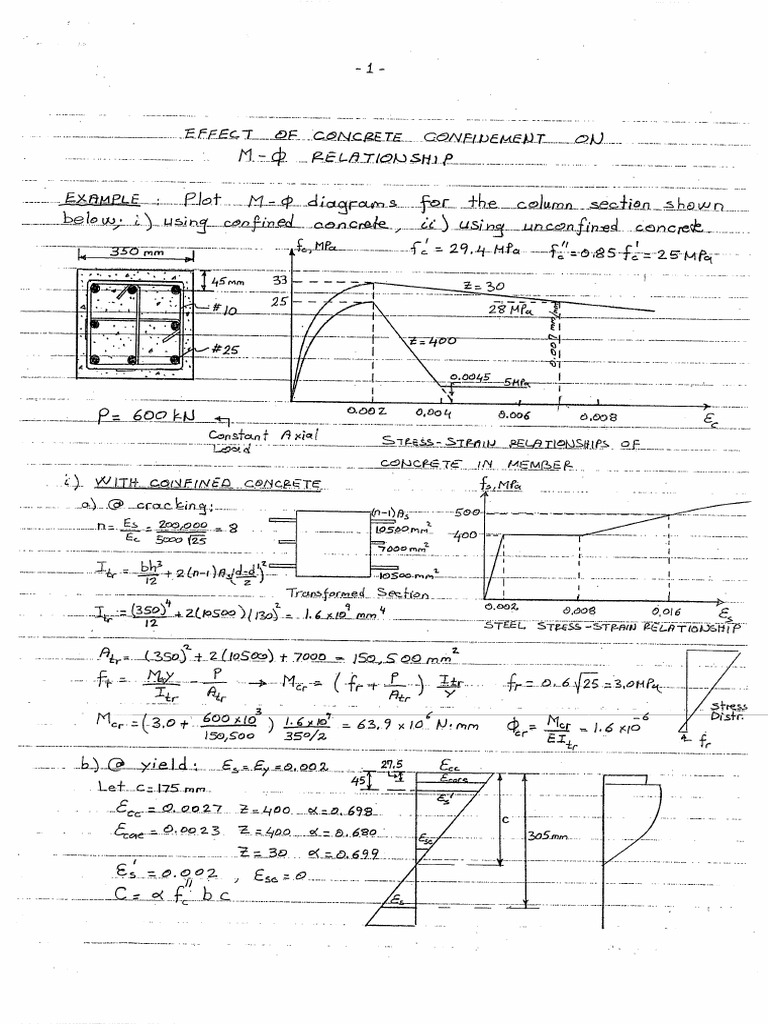 - 1 -
EFFECT OF CONCRETE CONFINEMENT ON
M-Φ RELATIONSHIP
EXAMPLE : Plot M-Φ diagrams for the column section shown
below; i) using confined concrete, ii) using unconfined concrete.
350 mm
45 mm
#10
#25
fc, MPa
fc' = 29.4 MPa fc'' = 0.85 fc' = 25 MPa
33
25
Z=30
28 MPa
Z=400
0.007 mm/mm
0.0045
5MPa
0.002 0.004 0.006 0.008 Ec
P = 600 kN
Constant Axial
Load
STRESS-STRAIN RELATIONSHIPS OF
CONCRETE IN MEMBER
i) WITH CONFINED CONCRETE
a) @ cracking:
n = Es/Ec = 200,000/5000√25 = 8
Itr = bh³/12 + 2(n-1)As(d-d'/2)²
Itr = (350)⁴/12 + 2(10500)(130)² = 1.6x10⁹ mm⁴
(n-1)As
10500mm²
7000mm²
10500mm²
Transformed Section
fs, MPa
500
400
0.002 0,008 0,016 Es
STEEL STRESS-STRAIN RELATIONSHIP
Atr = (350)² + 2(10500) + 7000 = 150,500 mm²
ft = My/Itr - P/Atr → Mcr = (fr + P/Atr) Itr/y fr = 0.6√25 = 3.0MPa
Mcr = (3.0 + 600x10³/150,500) 1.6x10⁹/350/2 = 63.9 x10⁶ N.mm Φcr = Mcr/EItr = 1.6 x10⁻⁶
Stress
Distr.
fr
b) @ yield: Es = Ey = 0.002
Let c = 175 mm
Ecc = 0.0027 Z=400 α=0.698
Ecoc = 0.0023 Z=400 α=0.680
Z=30 α=0.699
Es' = 0.002 , Esc = 0
C = α fc'' b c
27.5
45
Ecc
Ecoc
Es'
Esc
Es
c
305mm